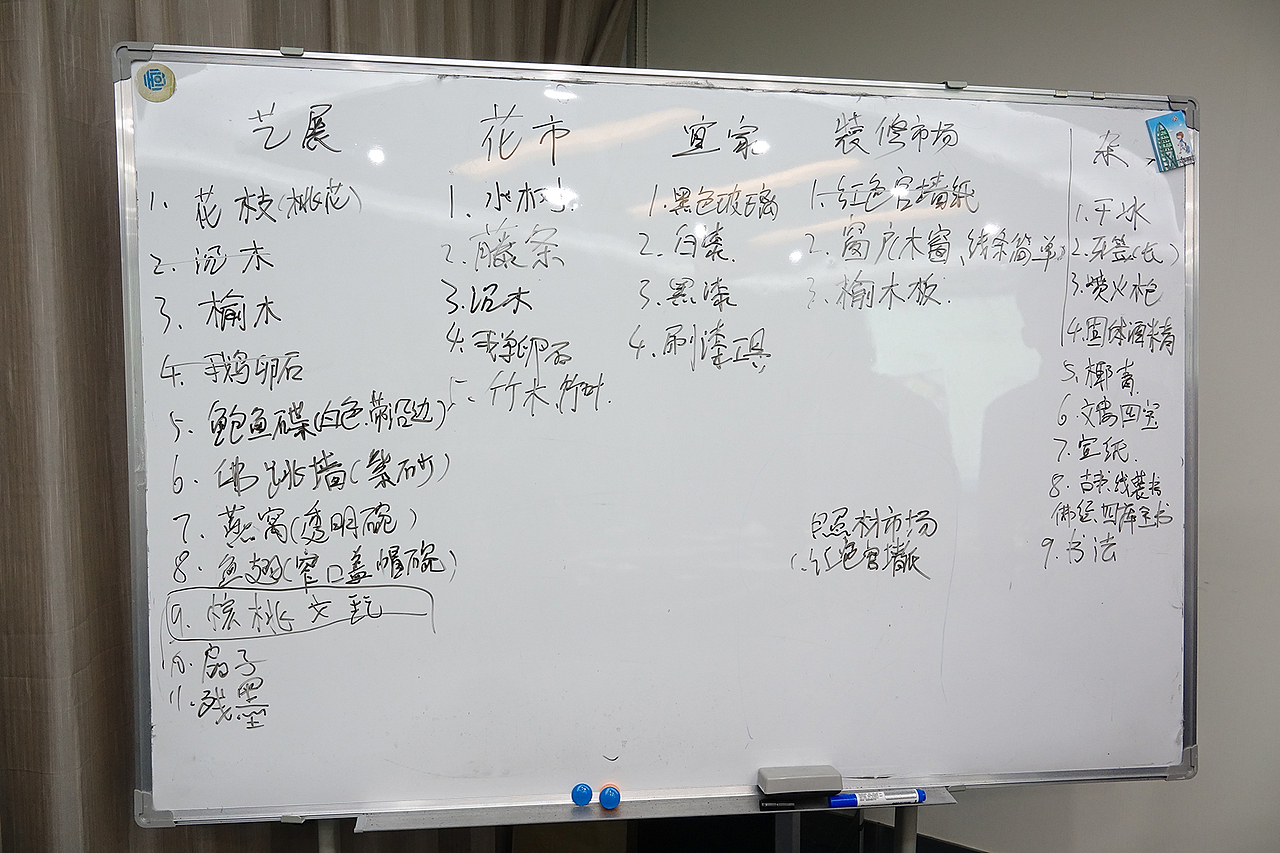 艺展
1. 花枝(桃花)
2. 沉木
3. 榆木
4. 鹅卵石
5. 鲍鱼碟(白色.带沿边)
6. 佛跳墙(紫砂)
7. 燕窝(透明碗)
8. 鱼翅(窄口盖帽碗)
9. 核桃文玩
10. 扇子
11. 残墨
花市
1. 水
2. 藤条
3. 沉木
4. 鹅卵石
5. 竹木.竹叶.
宜家
1. 黑色玻璃
2. 白漆.
3. 黑漆
4. 刷漆工具
装修市场
1. 红色宫墙纸
2. 窗户木窗、线条简单
3. 榆木板.
照材市场
1. 红色宫墙纸
杂
1. 干冰
2. 牙签(长)
3. 喷火枪
4. 固体酒精
5. 椰青
6. 文房四宝
7. 宣纸.
8. 古书.线装书
佛经.四库全书
9. 书法